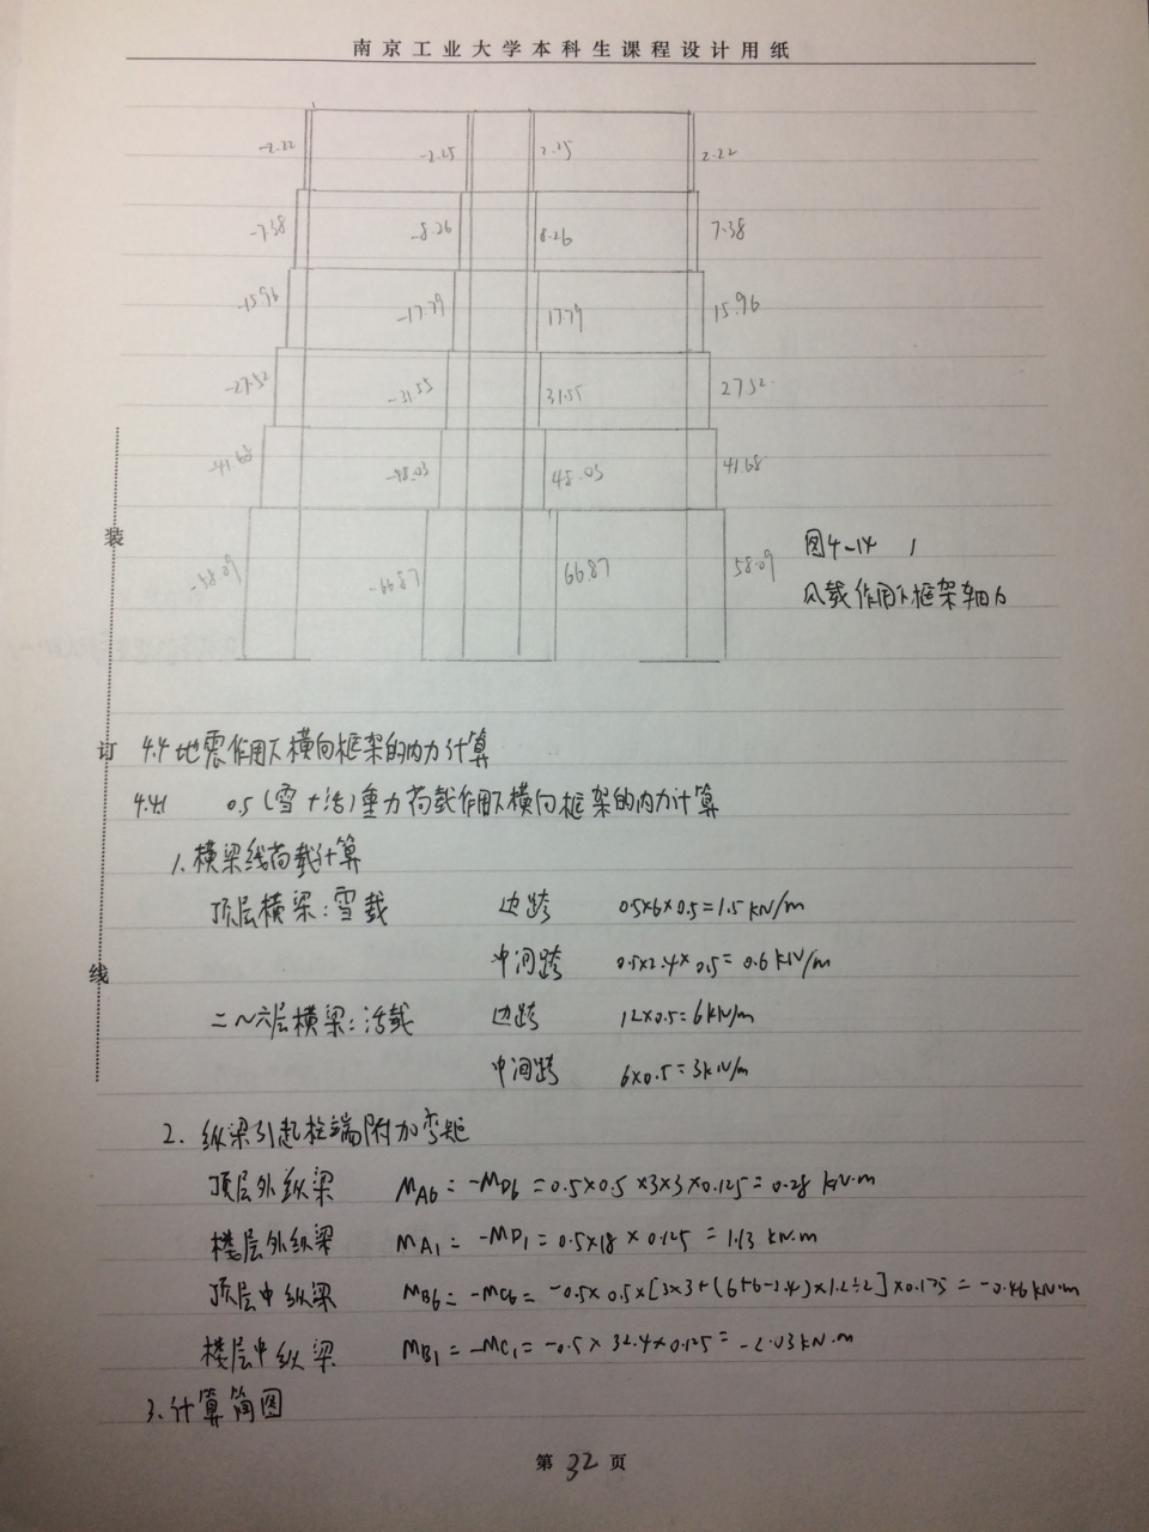 南京工业大学本科生课程设计用纸
-2.22 -2.25 2.25 2.22
-7.38 -8.26 8.26 7.38
-15.96 -17.79 17.79 15.96
-27.52 -31.55 31.55 27.52
-41.68 -48.03 48.03 41.68
-58.09 -66.87 66.87 58.09
图4-14
风载作用下框架轴力
装
订
线
4.4 地震作用下横向框架的内力计算
4.4.1 0.5(雪+活)重力荷载作用下横向框架的内力计算
1.横梁线荷载计算
顶层横梁:雪载 边跨 0.5×6×0.5=1.5 kN/m
中间跨 0.5×2.4×0.5=0.6 kN/m
二~六层横梁:活载 边跨 12×0.5=6kN/m
中间跨 6×0.5=3kN/m
2.纵梁引起柱端附加弯矩
顶层外纵梁 MA6=-MD6=0.5×0.5×3×3×0.125=0.28 kN·m
楼层外纵梁 MA1=-MD1=0.5×18×0.125=1.13 kN·m
顶层中纵梁 MB6=-MC6=-0.5×0.5×[3×3+(6+6-2.4)×1.2÷2]×0.125=-0.46kN·m
楼层中纵梁 MB1=-MC1=-0.5×32.4×0.125=-2.03kN·m
3.计算简图
第32页